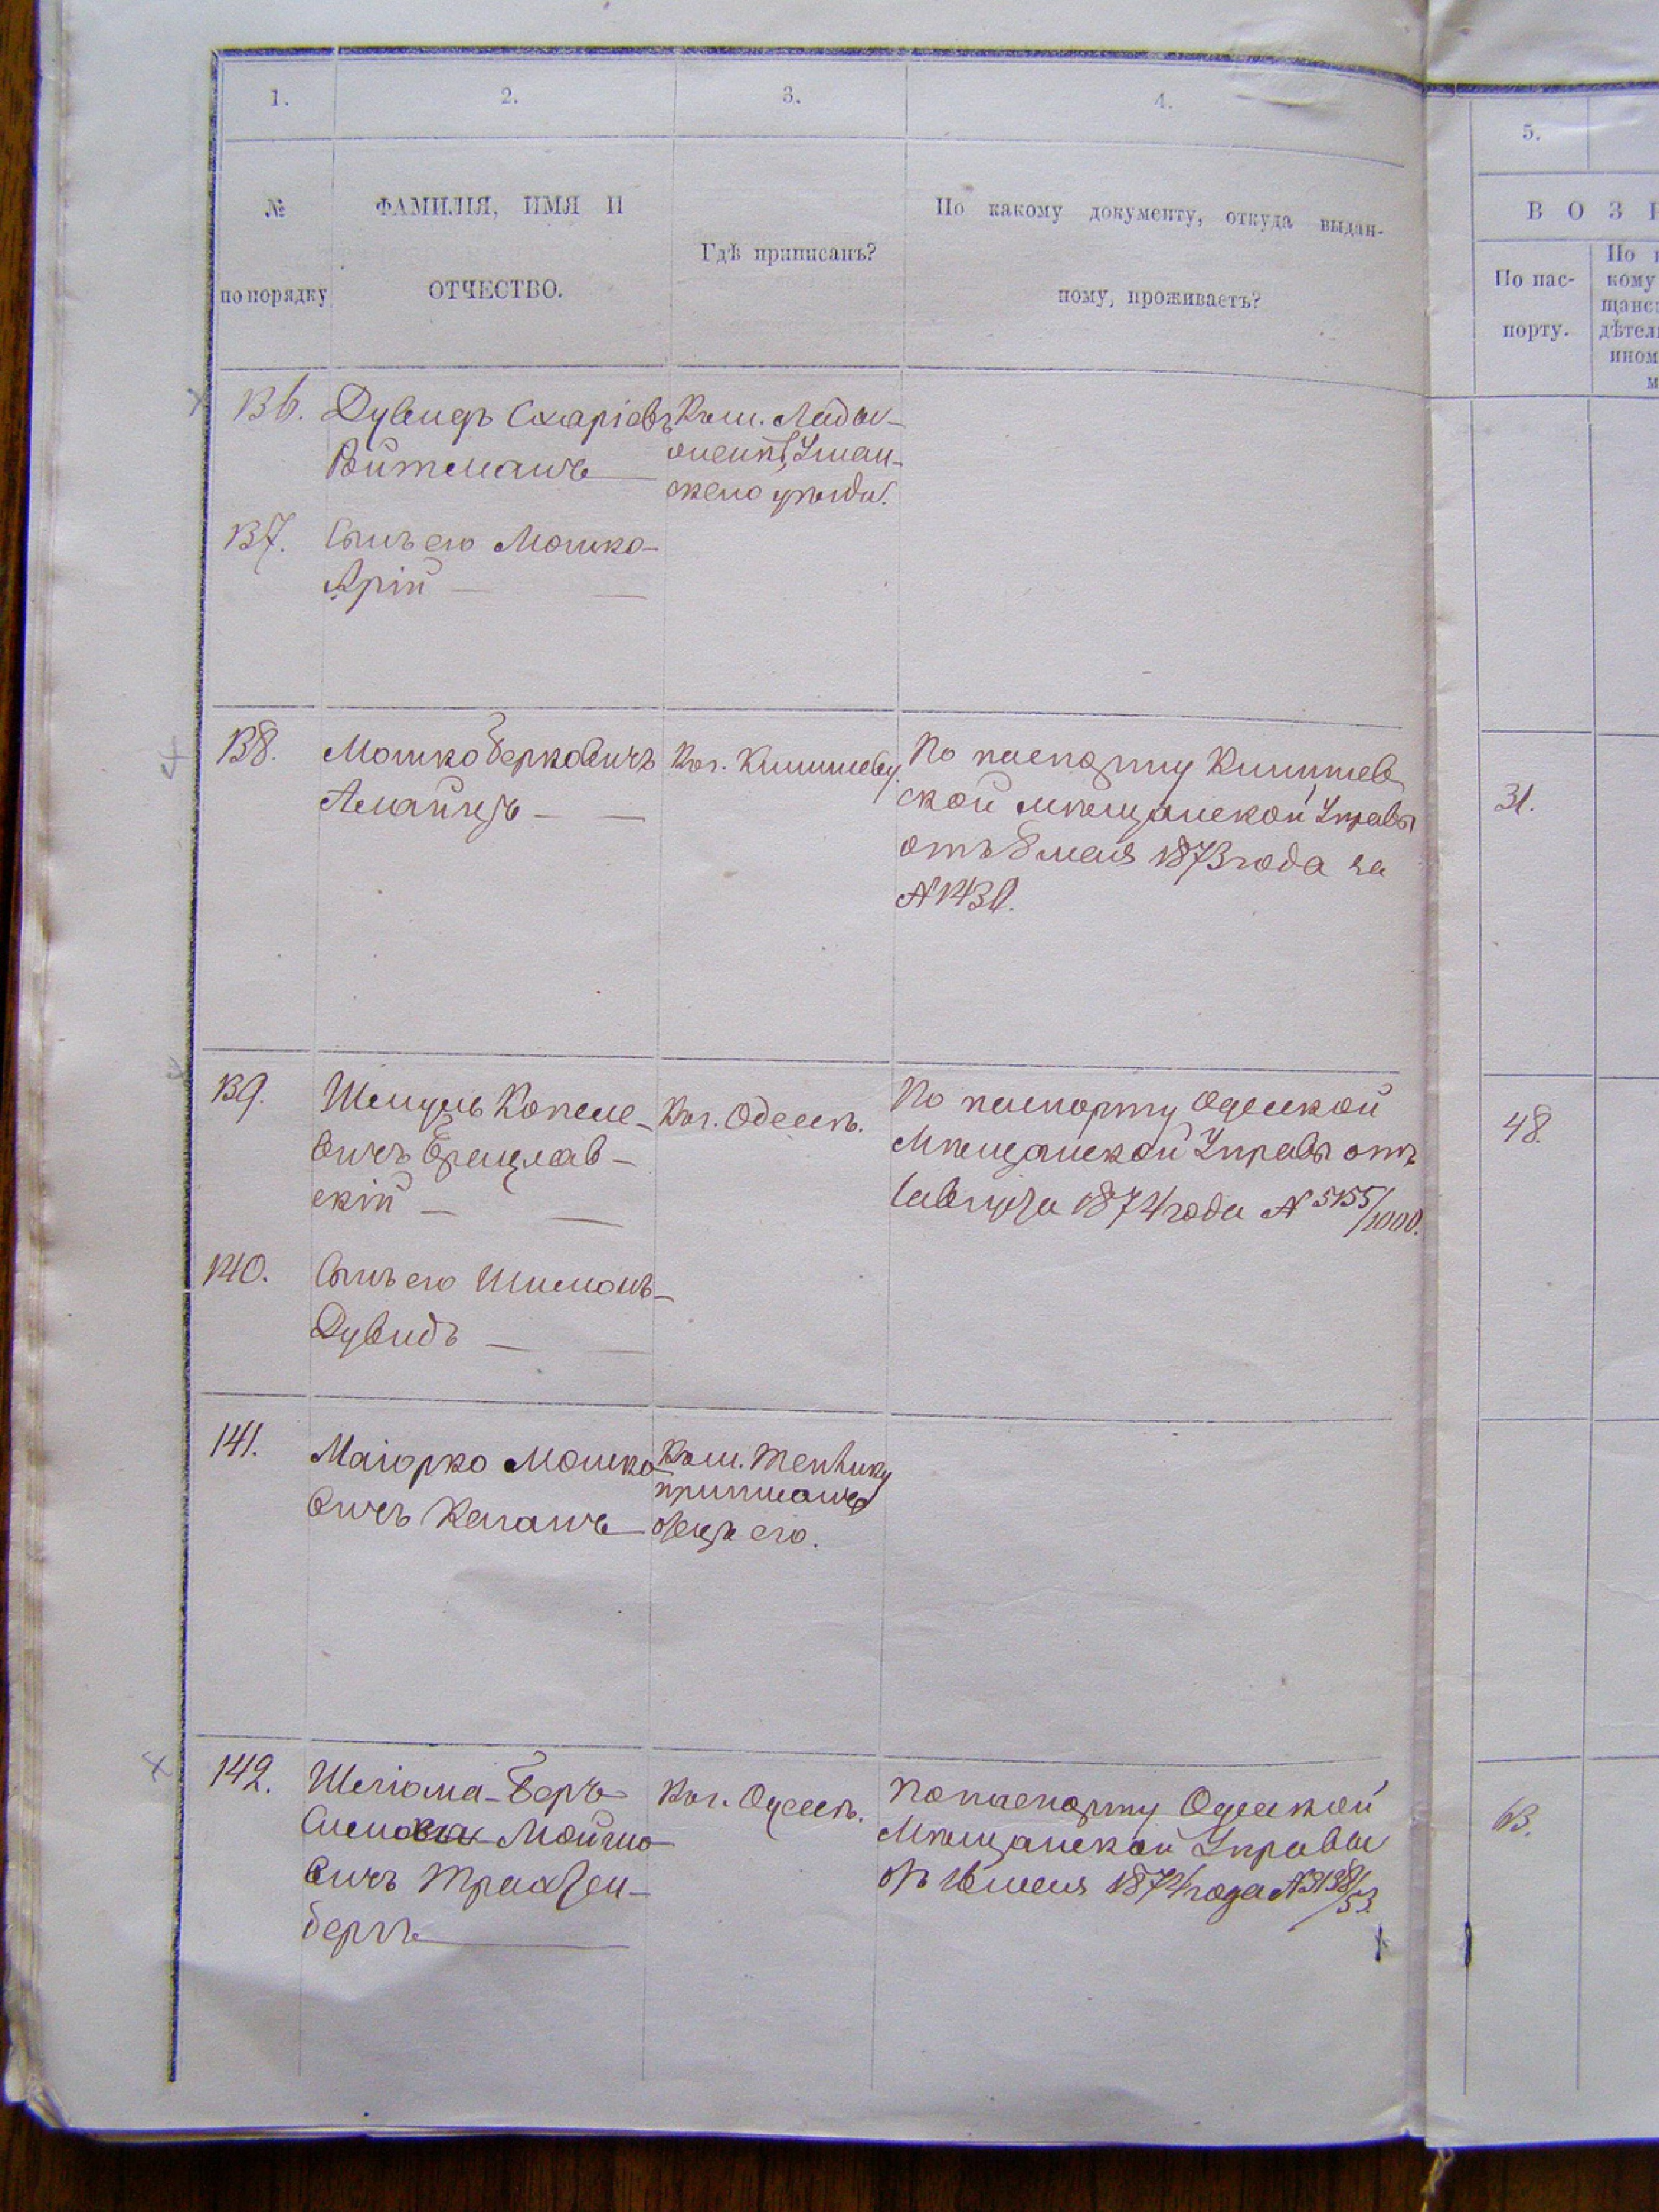 1.
2.
3.
4.
№
по порядку
ФАМИЛІЯ, ИМЯ И
ОТЧЕСТВО.
Гдѣ приписанъ?
По какому документу, откуда выдан-
ному, проживаетъ?
5.
В О З
По пас-
порту.
136.
Дувидъ
Войтманъ
Къ м. Лады-
женкѣ, Уман-
скаго уѣзда.
137.
Сынъ его Мошко-
Арій
138.
Мошко Берковичъ
Къ г. Кишиневу
По паспорту Кишинев
ской мѣщанской Управы
отъ 8 мая 1873 года за
№ 1430.
31.
139.
Шмуль Копеле-
вичъ Брацлав-
скій
Къ г. Одессѣ.
По паспорту Одесской
Мѣщанской Управы отъ
1 августа 1874 года № 5155/1000.
48.
140.
Сынъ его Шимонъ-
Дувидъ
141.
Маіорко Мошко-
вичъ Каганъ
Къ м. Теплику
приписанъ
отецъ его.
142.
Шліома-Беръ
Мойшо-
вичъ Трахтен-
бергъ
Къ г. Одессѣ.
По паспорту Одесской
Мѣщанской Управы
отъ 16 мая 1874 года № 3138/53.
63.